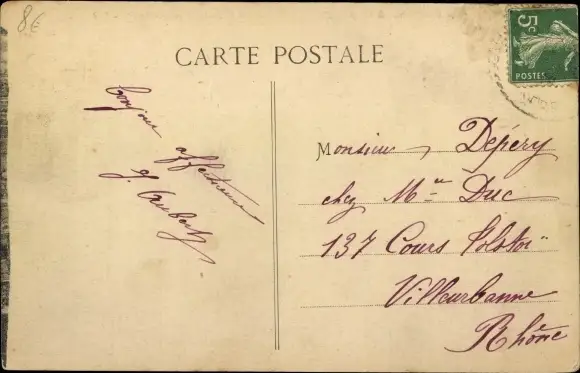 8€
CARTE POSTALE
5c
POSTES
Bonjour
affectueux
J. Aubert
Monsieur Dépéry
chez Mr Duc
137 Cours Tolstoï
Villeurbanne
Rhône